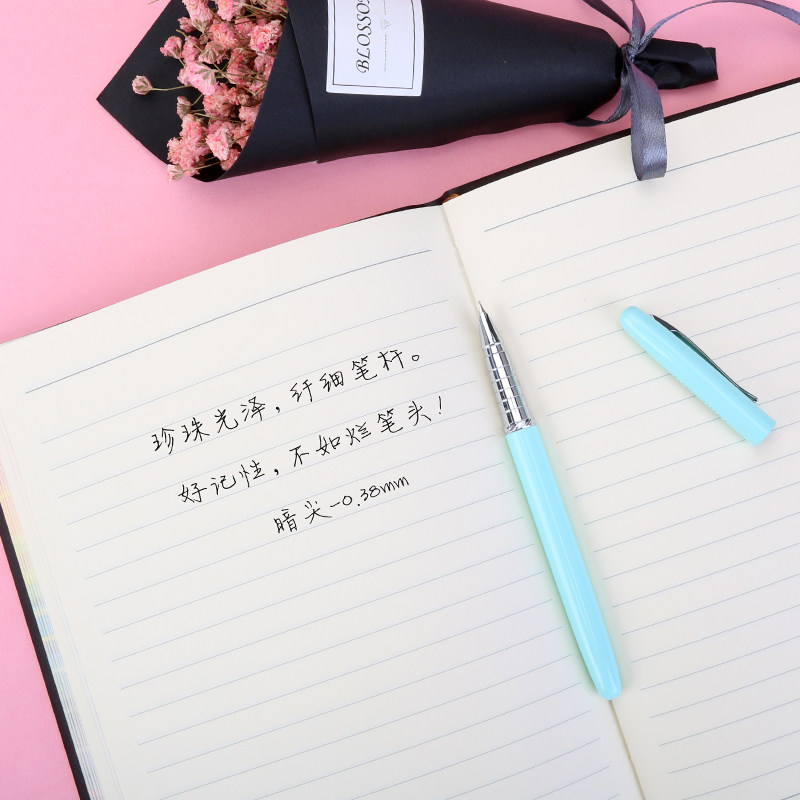 BLOSSO
珍珠光泽，纤细笔杆。
好记性，不如烂笔头！
暗尖-0.38mm